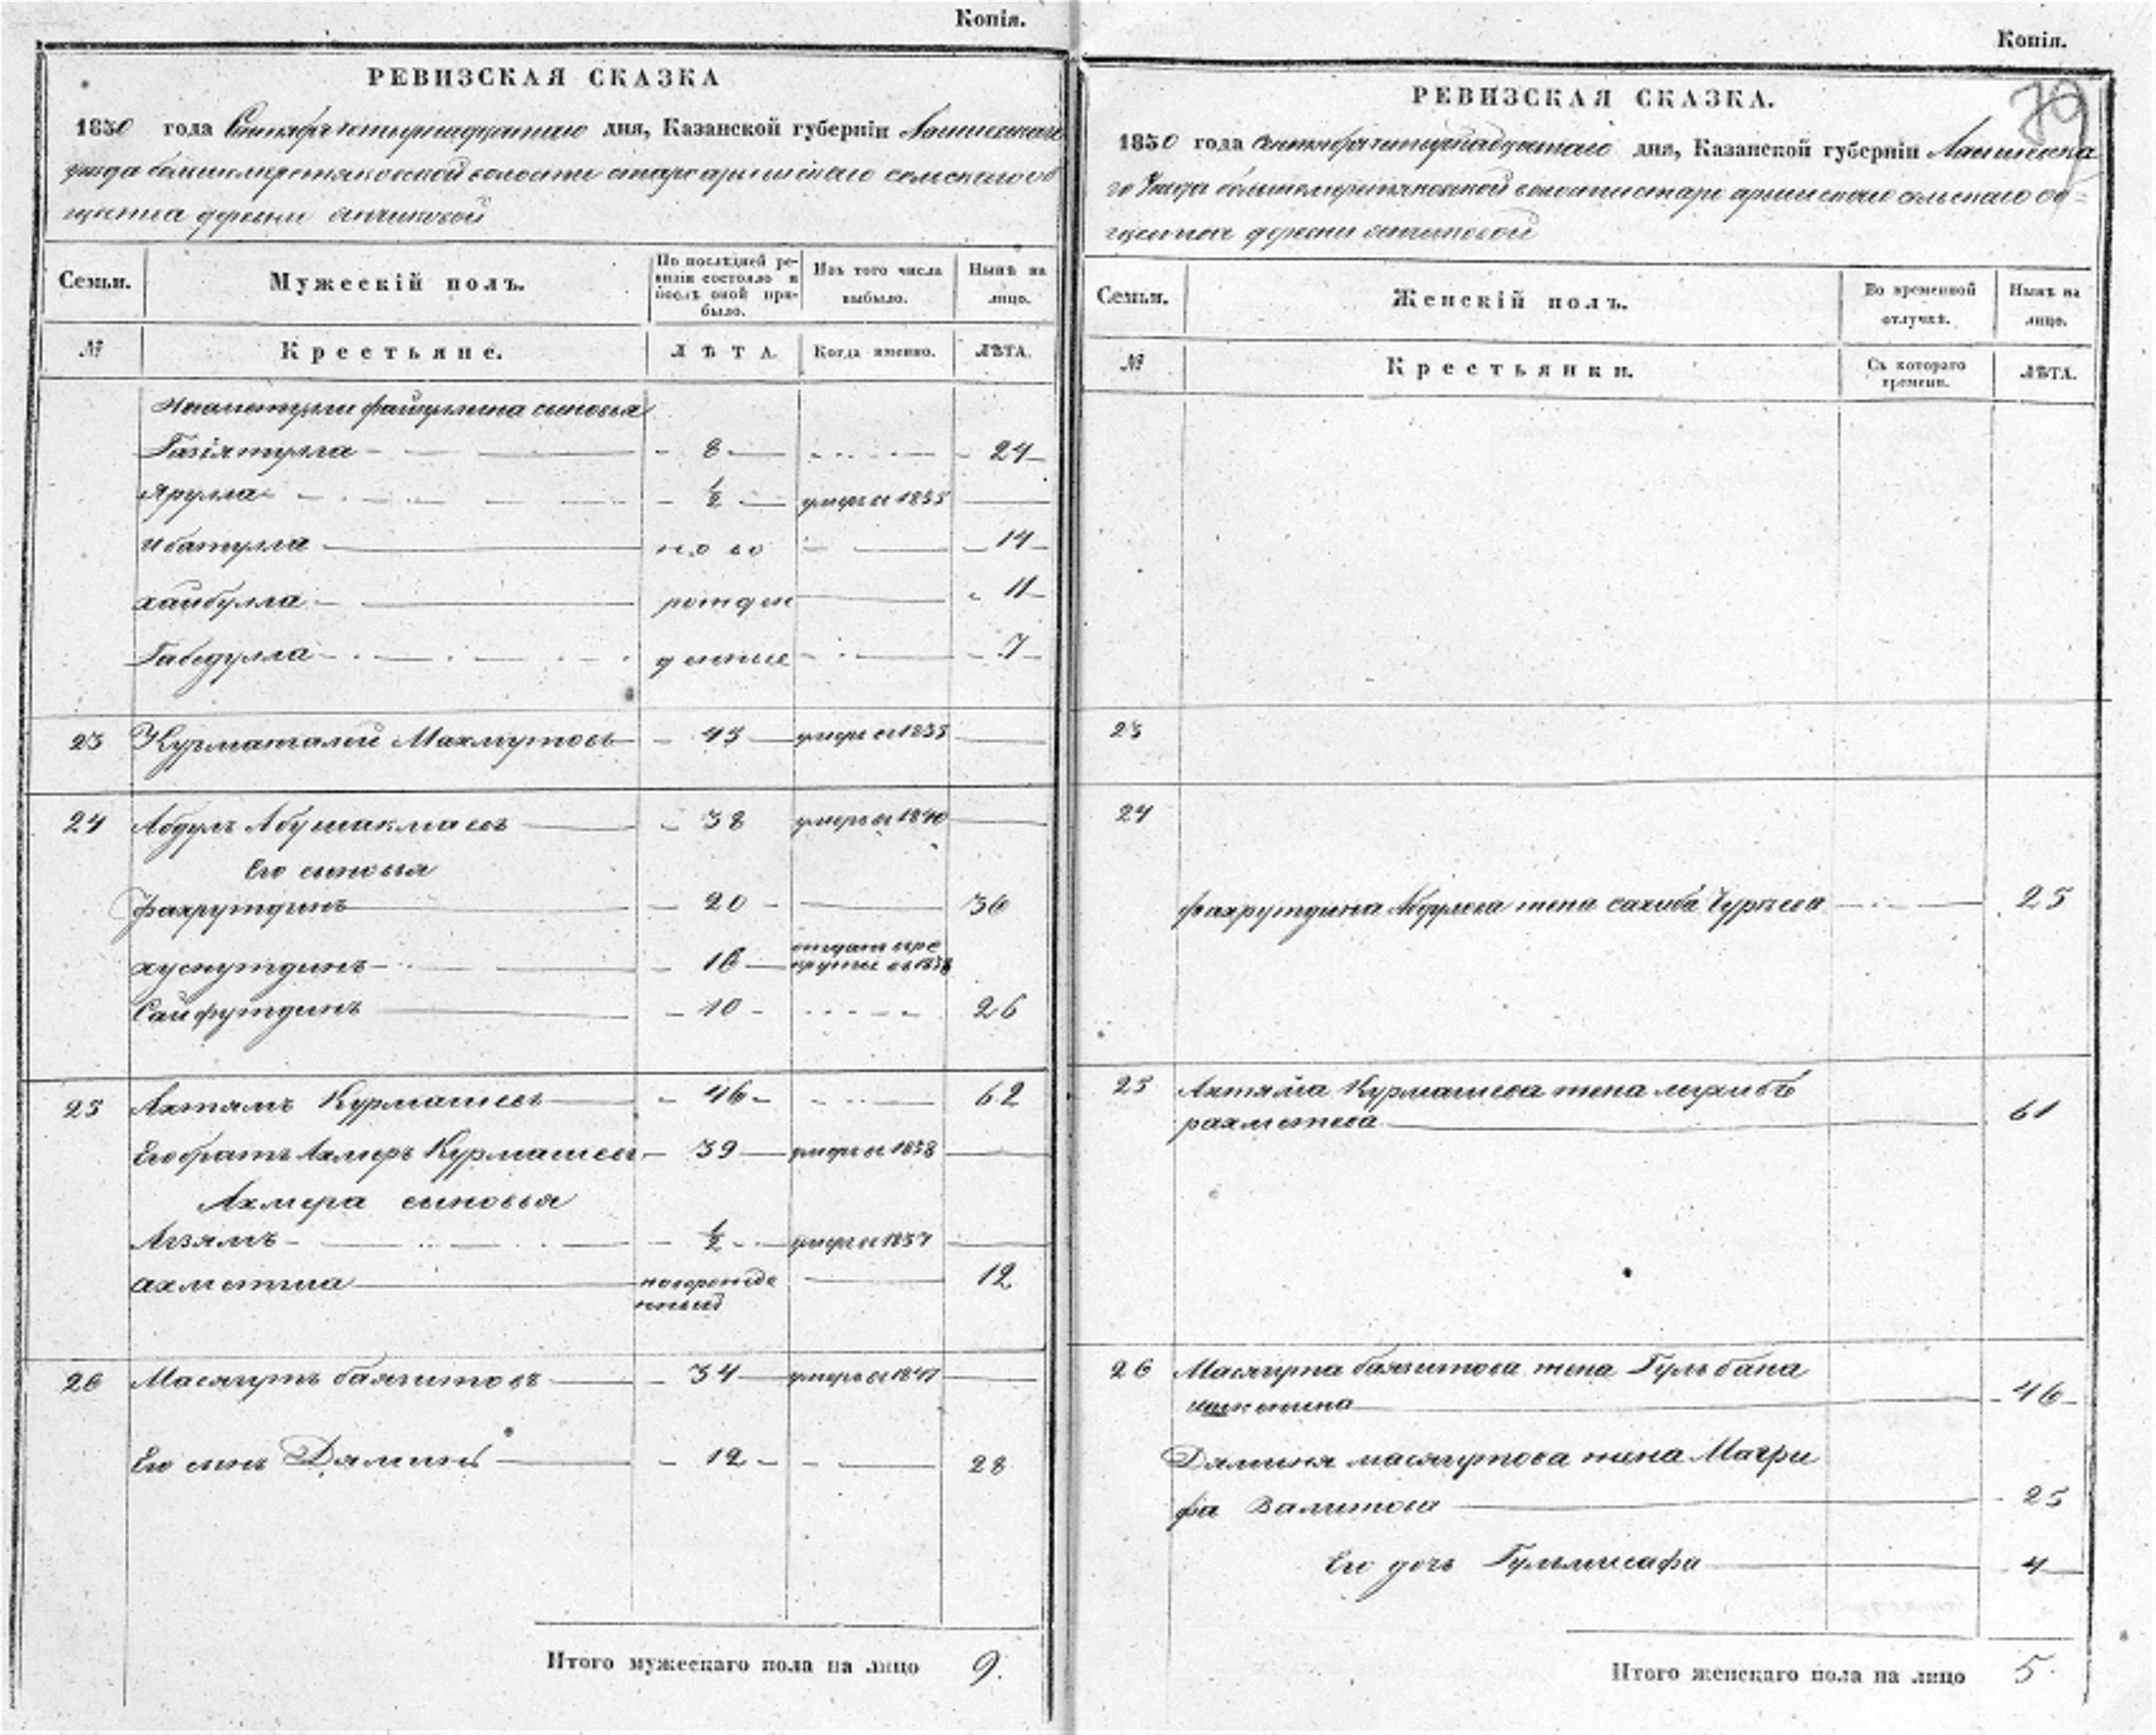 Копія.
РЕВИЗСКАЯ СКАЗКА
1850 года Сентября четырнадцатаго дня, Казанской губерніи Лаишевскаго
уезда большемеретяковской волости стараго арышскаго сельскаго об
щества деревни
Семьи. Мужескій полъ. По послѣдней ре-визіи состояло и послѣ оной при-было. Изъ того числа выбыло. Нынѣ на лицо.
№ Крестьяне. ЛѢТА. Когда именно. ЛѢТА.
файзуллина сыновья
Газіятулла 8 24
Ярулла ½ умеръ въ 1835
Ибатулла ново 14
хайбулла рожден 11
Габедулла денные 7
23 Курматалей Махмутовъ 43 умеръ въ 1835
24 Абдулъ 38 умеръ въ 1840
Его сыновья
Фахрутдинъ 20 36
хуснутдинъ 16 отданъ въ ре круты въ 1838
Сайфутдинъ 10 26
25 Ахтямъ Курмашевъ 46 62
Его братъ Ахмеръ Курмашевъ 39 умеръ въ 1838
Ахмера сыновья
Агзямъ ½ умеръ въ 1837
ахметша новорожде нный 12
26 Масягутъ баязитовъ 34 умеръ въ 1847
Его сынъ Дяминъ 12 28
Итого мужескаго пола на лицо 9.
Копія.
79
РЕВИЗСКАЯ СКАЗКА.
1850 года Сентября четырнадцатаго дня, Казанской губерніи Лаишевска
го Уезда большемеретяковской волости стараго арышскаго сельскаго об=
щества деревни
Семьи. Женскій полъ. Во временной отлучкѣ. Нынѣ на лицо.
№ Крестьянки. Съ котораго времени. ЛѢТА.
23
24
фахрутдина Абдулова жена сахиба 25
25 Ахтяма Курмашева жена мухибъ
рахметева 61
26 Масягута баязитова жена Гульбана
46
Дяминя масягутова жена Магри
фа Валитова 25
Его дочь Гульмисафа 4
Итого женскаго пола на лицо 5.